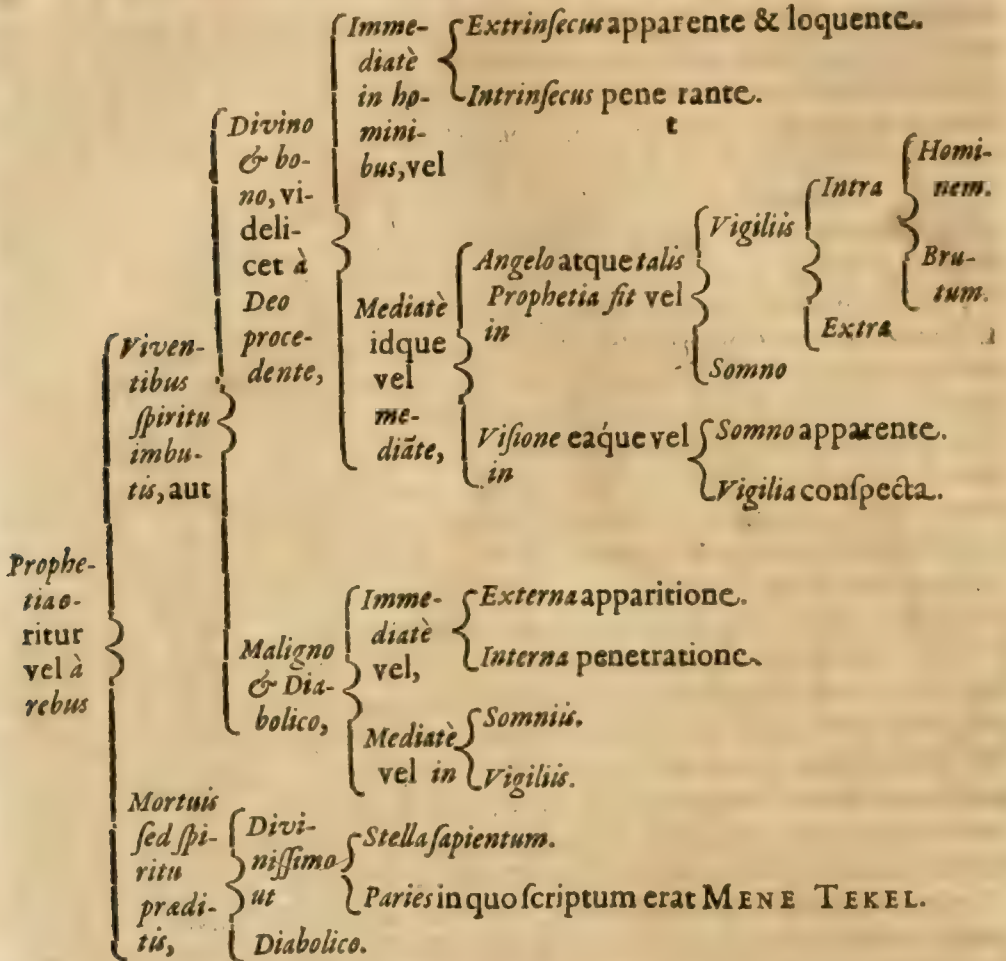 Prophe-
tia o-
ritur
vel à
rebus
Viven-
tibus
ſpiritu
imbu-
tis, aut
Divino
& bo-
no, vi-
deli-
cet à
Deo
proce-
dente,
Imme-
diatè
in ho-
mini-
bus, vel
Extrinſecus apparente & loquente.
Intrinſecus pene rante.
t
Mediatè
idque
vel
me-
diãte,
Angelo atque talis
Prophetia fit vel
in
Vigiliis
Intra
Homi-
nem.
Bru-
tum.
Extra
Somno
Viſione eáque vel
in
Somno apparente.
Vigilia conſpecta.
Maligno
& Dia-
bolico,
Imme-
diatè
vel,
Externa apparitione.
Interna penetratione.
Mediatè
vel in
Somniis.
Vigiliis.
Mortuis
ſed ſpi-
ritu
prædi-
tis,
Divi-
niſſimo
ut
Stella ſapientum.
Paries in quo ſcriptum erat MENE TEKEL.
Diabolico.